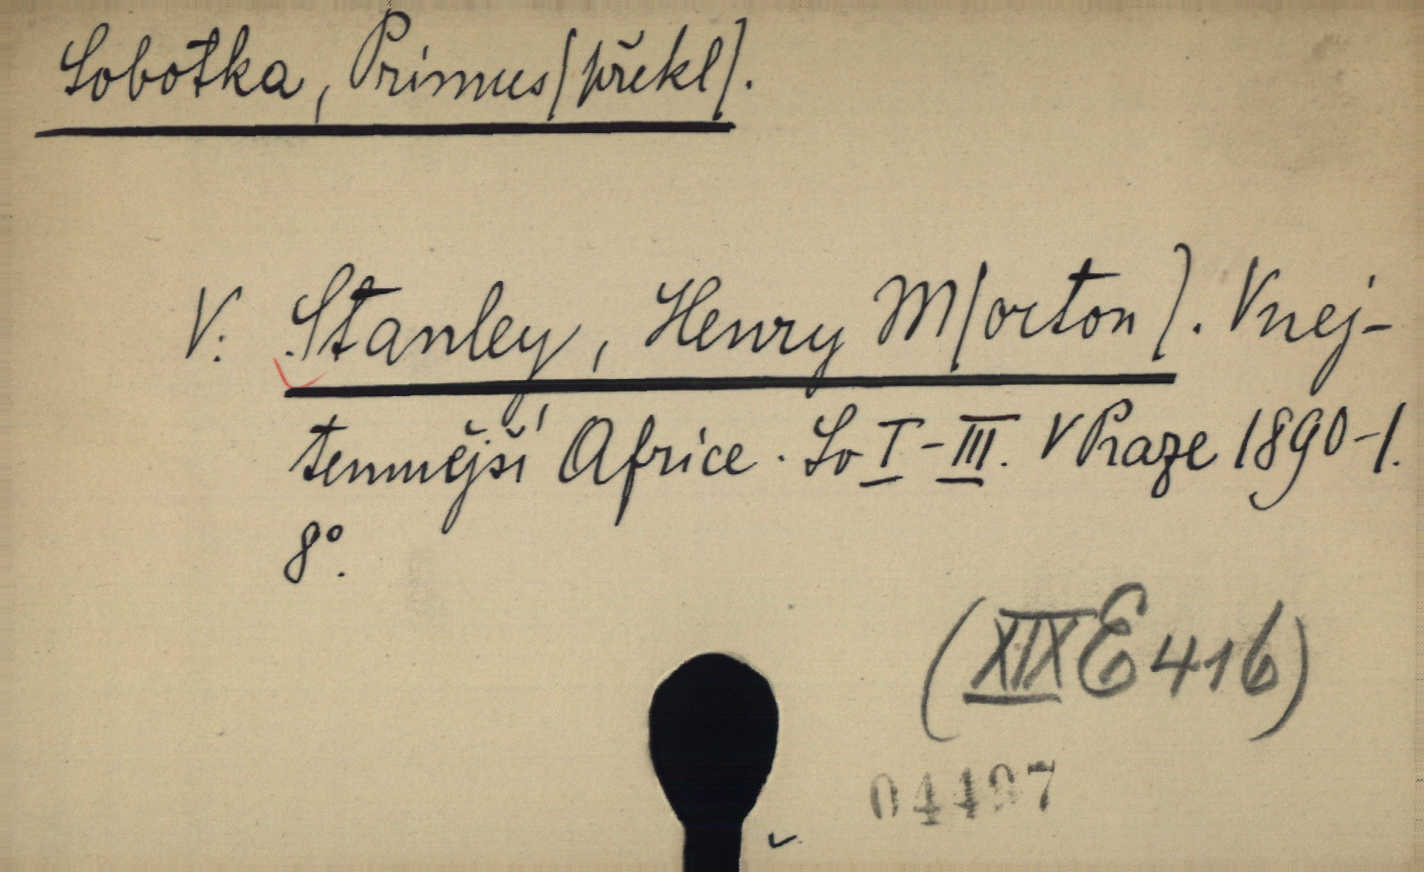 Sobotka, Primus [překl].
V: Stanley, Henry M[orton]. V nej-
temnější Africe. Sv I-III. V Praze 1890-1.
8°.
(XIX E 416)
04497